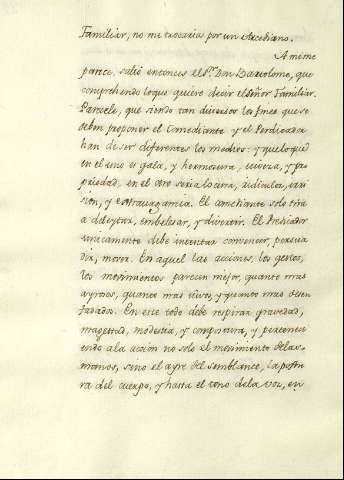 Familiar, no me trocaria por un Arcediano.
A mi me
parece, salió entonces el Sr. Don Bartolome, que
comprehendo loque quiere decir el Señor Familiar.
Parecele, que siendo tan diversos los fines que se
deben proponer el Comediante y el Predicador
han de ser diferentes los medios: y que loque
en el uno es gala, y hermosura, viveza, y pro
priedad, en el otro seria locura, ridiculez, irri
sion, y extravagancia. El comediante solo tira
a deleytar, embelesar, y divertir. El Predicador
unicamente debe intentar convencer, persua
dir, mover. En aquel las acciones, los gestos,
los movimientos parecen mejor, quanto mas
ayrosos, quanto mas vivos, y quanto mas desen
fadados. En este todo debe respirar gravedad,
magestad, modestia, y compostura, y pertenec
iendo a la accion no solo el movimiento delas
manos, sino el ayre del semblante, la postu
ra del cuerpo, y hasta el tono dela voz, en